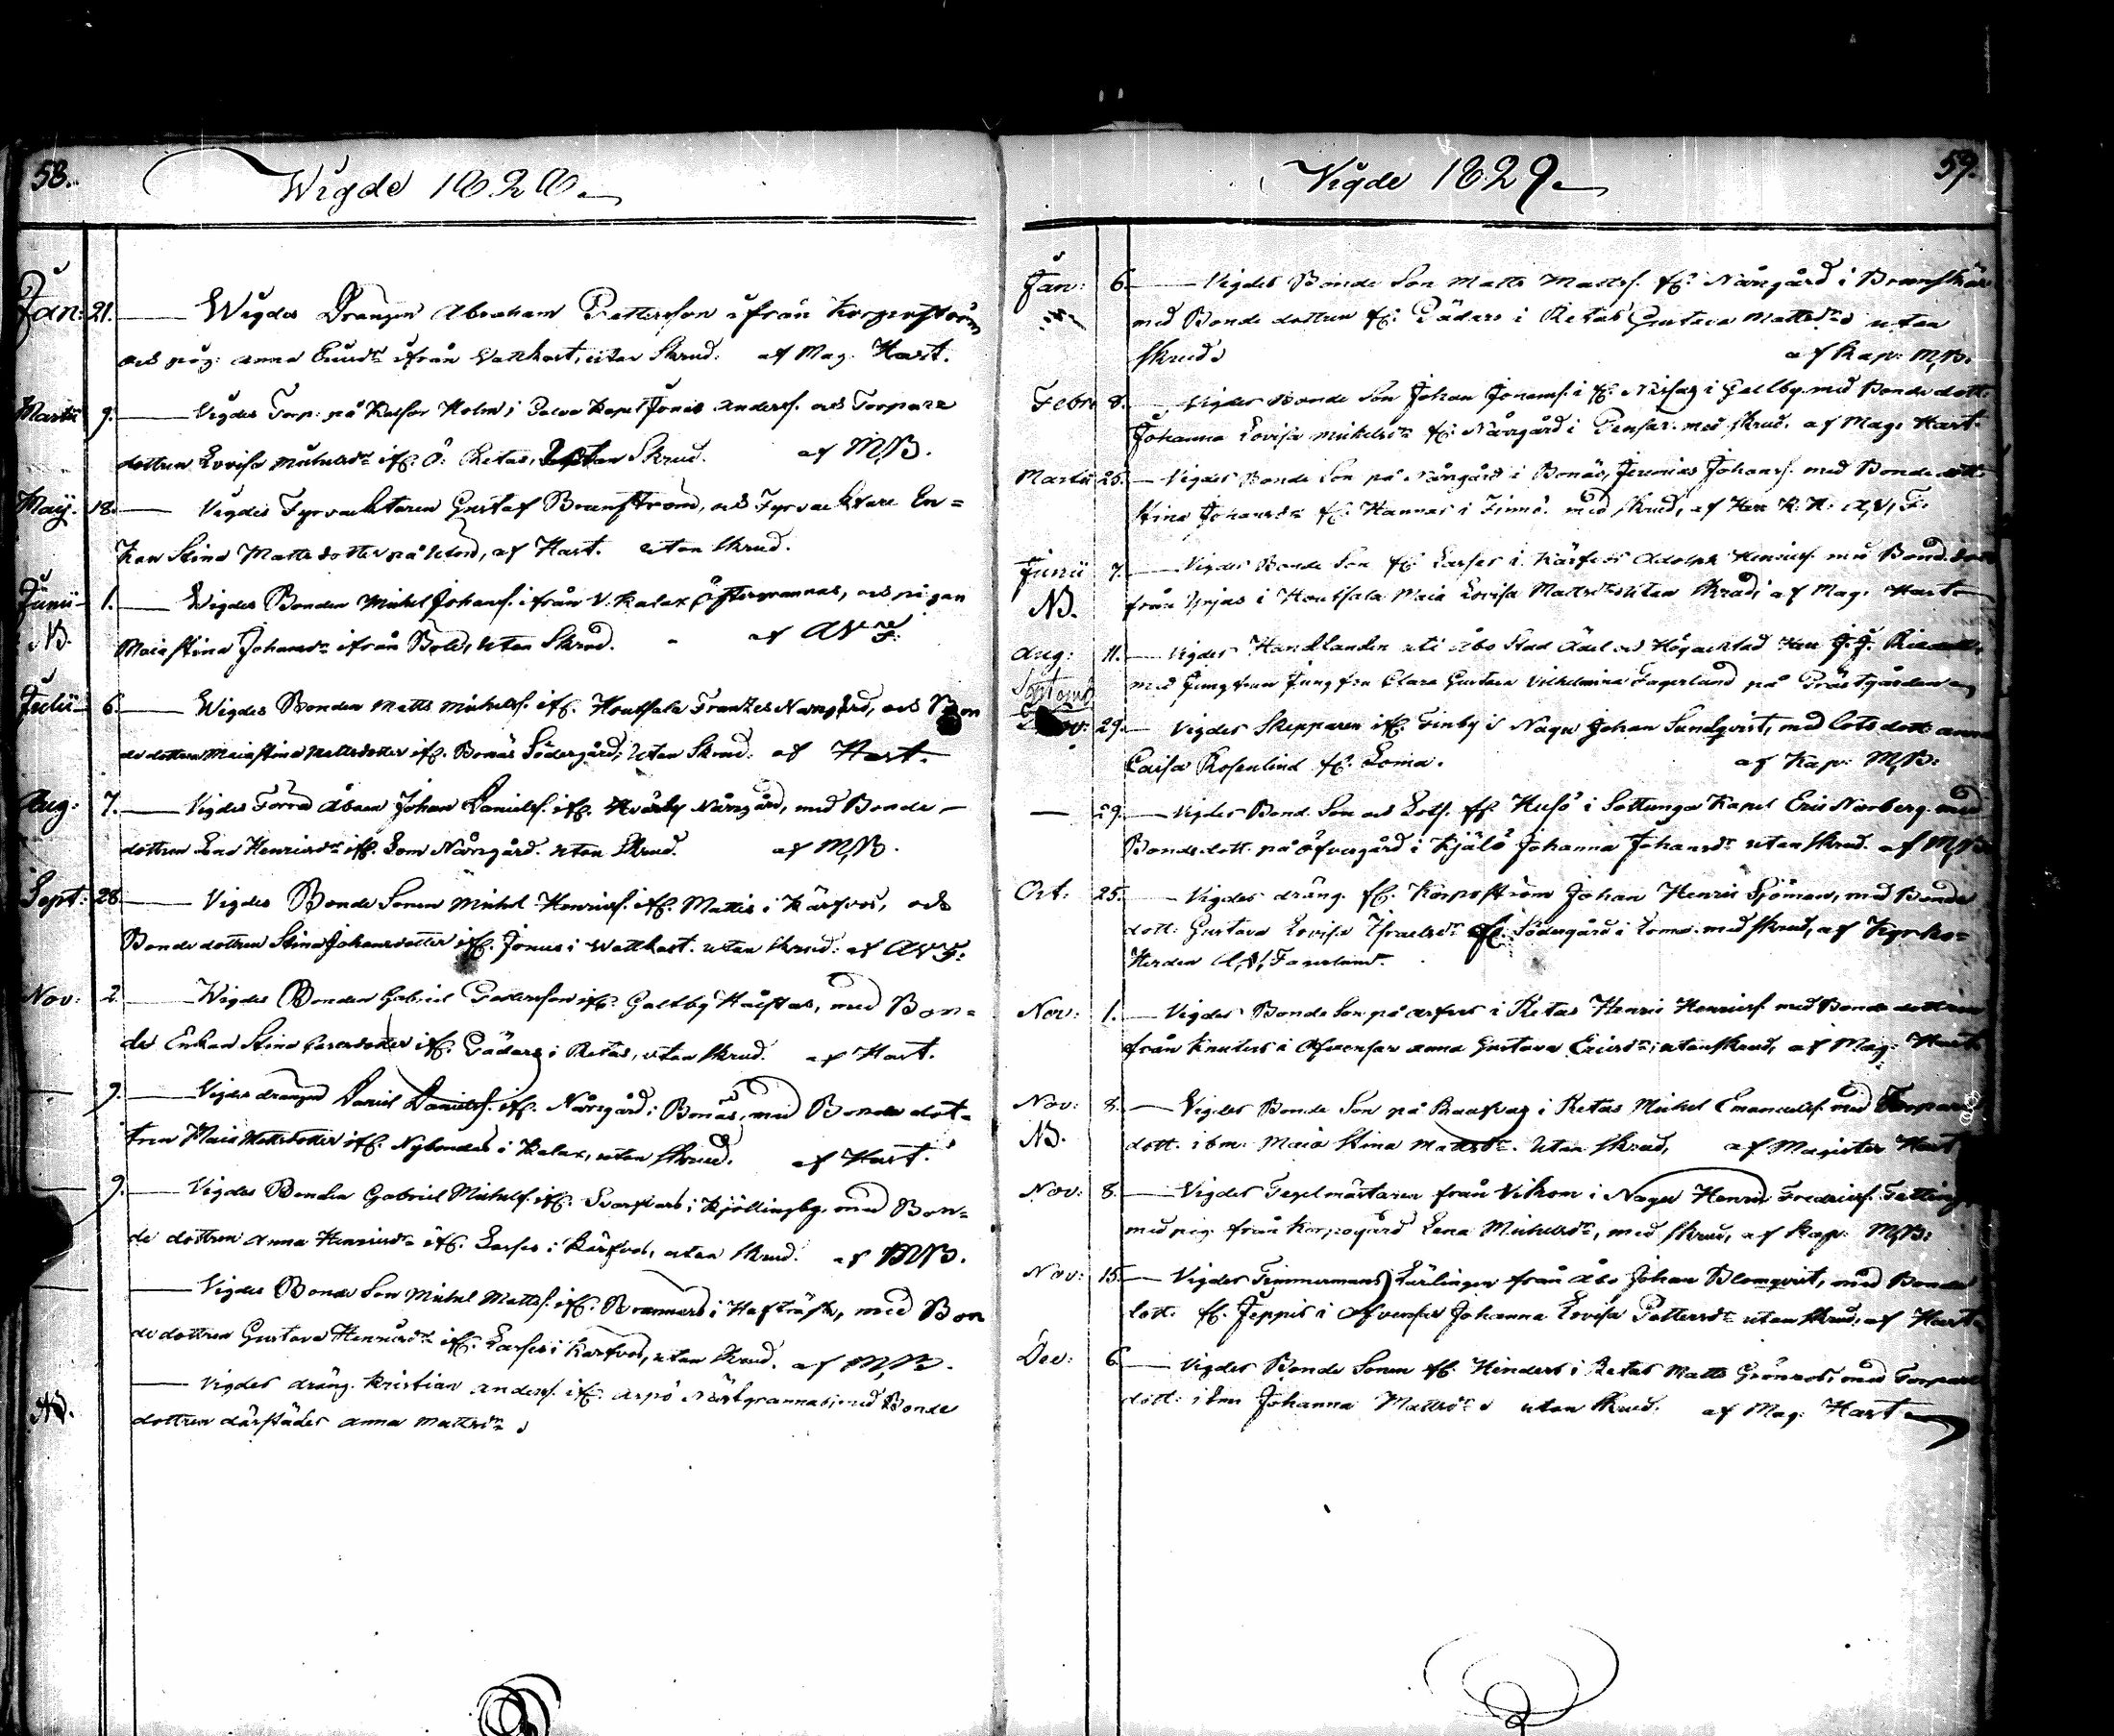 58.
Wigde 1828.
Jan: 21. Wigdes Drängen Abraham Pettersson ifrån Korpoström
och pig: Anna Ericsdr ifrån Wattkast, utan Skrud. af Mag. Hart.
Martii 9. Vigdes Torp: på Kalfor Holm i Capel Jonas Anderss. och Torpare
dottren Lovisa Michelsdr if. Ö: Retas, utan Skrud. af M,B.
Maij. 18. Vigdes Fyrvacktaren Gustaf Brunström, och Fyrvacktare En=
kan Stina Mattsdotter på Utön, af Hart. utan Skrud.
Junii 1. Wigdes Bonden Michel Johanss. ifrån V: Kalax Östergrannas, och pigan
NB. Maia Stina Johansdr ifrån utan Skrud. af AVF.
Julii 6. Wigdes Bonden Matts Michelss. if. Houtsala Frantzes Norrgård, och Bon
de dottren Maia Stina Mattsdotter if. Bonäs Södergård, Utan Skrud. af Hart.
Aug: 7. Vigdes Johan Danielss. if. Norrgård, med Bonde
dottren Lena Henricsdr if. Lom Norrgård. utan Skrud. af M,B.
Sept: 28 Vigdes Bonde Sonen Michel Henricss. if. Mattis i Kärfvos, och
Bonde dottren Stina Johansdotter if. Jonus i Wattkast. utan skrud: af AVF.
Nov: 2. Wigdes Bonden Gabriel Pedersson if. Galtby med Bon=
de Enkan Stina if. Päders i Retas, utan skrud. af Hart.
9. Vigdes drängen Daniel Danielss. if. Norrgård i Bonäs, med Bonde dot=
tren Maia Mattsdotter if. Nybondas i Kalax, utan skrud. af Hart.
9. Vigdes Bonden Gabriel Michelss. if. Svarfvars i Kjöllingby, med Bon=
de dottren Anna Henricsdr if. Larses i Kärfvos, utan skrud. af M,B.
Vigdes Bonde Son Michel Mattss. if. Brännars i Hafträsk, med Bon
de dottren Gustava Henricsdr if. Larses i Karfvos, utan skrud. af M,B.
NB. Vigdes dräng. Kristian Anderss. if. Aspö med Bonde
dottren därstädes Anna Mattsdr
59.
Vigde 1829.
Jan: 6. Vigdes Bonde Son Matts Mattss. if. Norrgård i Brunskär
med Bonde dottren if. Päders i Retas Gustava Mattsdr utan
skrud af Kap: M,B.
Febr. 8. Vigdes Bonde Son Johan Jonass. i if. i Galtby med Bonde dott:
Johanna Lovisa Michelsdr if. Norrgård i Pensar. med skrud. af Mag. Hart.
Martii 25. Vigdes Bonde Son på Norrgård i Bonäs, Jeremias Johanss. med Bonde dott:
Stina Johansdr if. Hannas i Finnö. med skrud, af Herr K: H: A,V, F.
Junii 7. Vigdes Bonde Son if. Larses i Kärfvos Adolph Henricss. med Bond. dott
NB. från i Houtsala Maia Lovisa Mattsdr utan skrud, af Mag. Hart
Aug: 11. Vigdes Handlanden uti Åbo Stad Ädel och Högacktad Herr J. J.
med Jungfrun Jungfru Clara Gustava Vilhelmina Fagerlund på Prästgården
Septemb 29. Vigdes Skepparen if. Finby i Nagu Johan Sundqvist, med Lots dott: Anna
Caisa Rosenlind if. Loma. af Kap: M,B:
29. Vigdes Bond. Son och Lots. if. Husö i Sottunga Kapel Eric Norberg. med
Bondedott. på Öfvergård i Kjälö Johanna Johansdr utan skrud. af M,B.
Oct: 25. Vigdes dräng. if. Korpoström Johan Henric Sjöman, med Bonde
dott: Gustava Lovisa Israelsdr if. Södergård i Loma. med skrud, af Kyrko=
Herden A,V, Fagerlund.
Nov: 1. Vigdes Bonde Son på i Retas Henric Henricss. med Bonde dottren
från Knuters i Öfvensar Anna Gustava Ericsdr, utan skrud, af Mag: Hart
Nov: 8. Vigdes Bonde Son på i Retas Michel Emanuelss. med Torpare
NB. dott. ibm: Maia Stina Mattsdr. utan skrud, af Magister Hart
Nov: 8. Vigdes Tegelmästaren från Vikom i Nagu Henric Fredricss.
med pig. från Korpogård Lena Michelsdr, med skrud, af Kap: M,B:
Nov: 15. Vigdes Timmermans Lärlingen från Åbo Johan Blomqvist, med Bonde
dott. if. Jeppis i Öfvensar Johanna Lovisa Pettersdr utan skrud, af Hart.
Dec: 6. Vigdes Bonde Sonen if. Hinders i Retas Matts Grönroos, med Torpare
dott: ibm Johanna Mattsdr utan skrud. af Mag: Hart